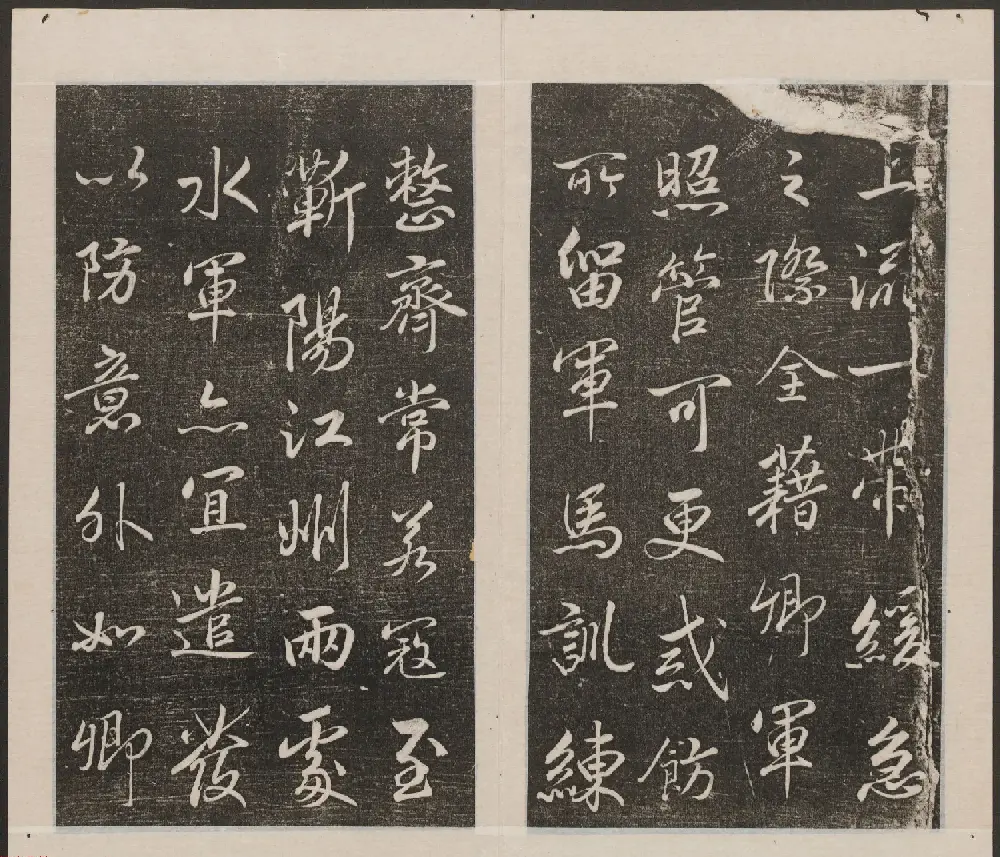 上流一带緩急
之際全藉卿軍
照管可更戒飭
所留軍馬訓練
整齊常若寇至
蘄陽江州兩處
水軍亦宜遣發
以防意外如卿